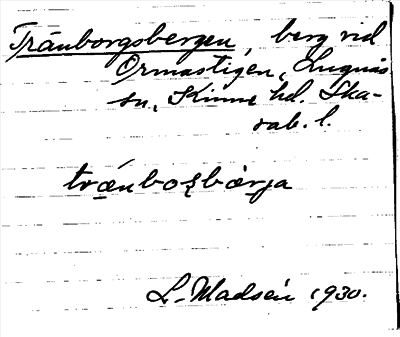 Trånborgsbergen, berg vid
Ormastigen, Lugnås
sn, Kinne hd. Ska-
rab. l.
trånbosbärja
L. Madsén 1930.